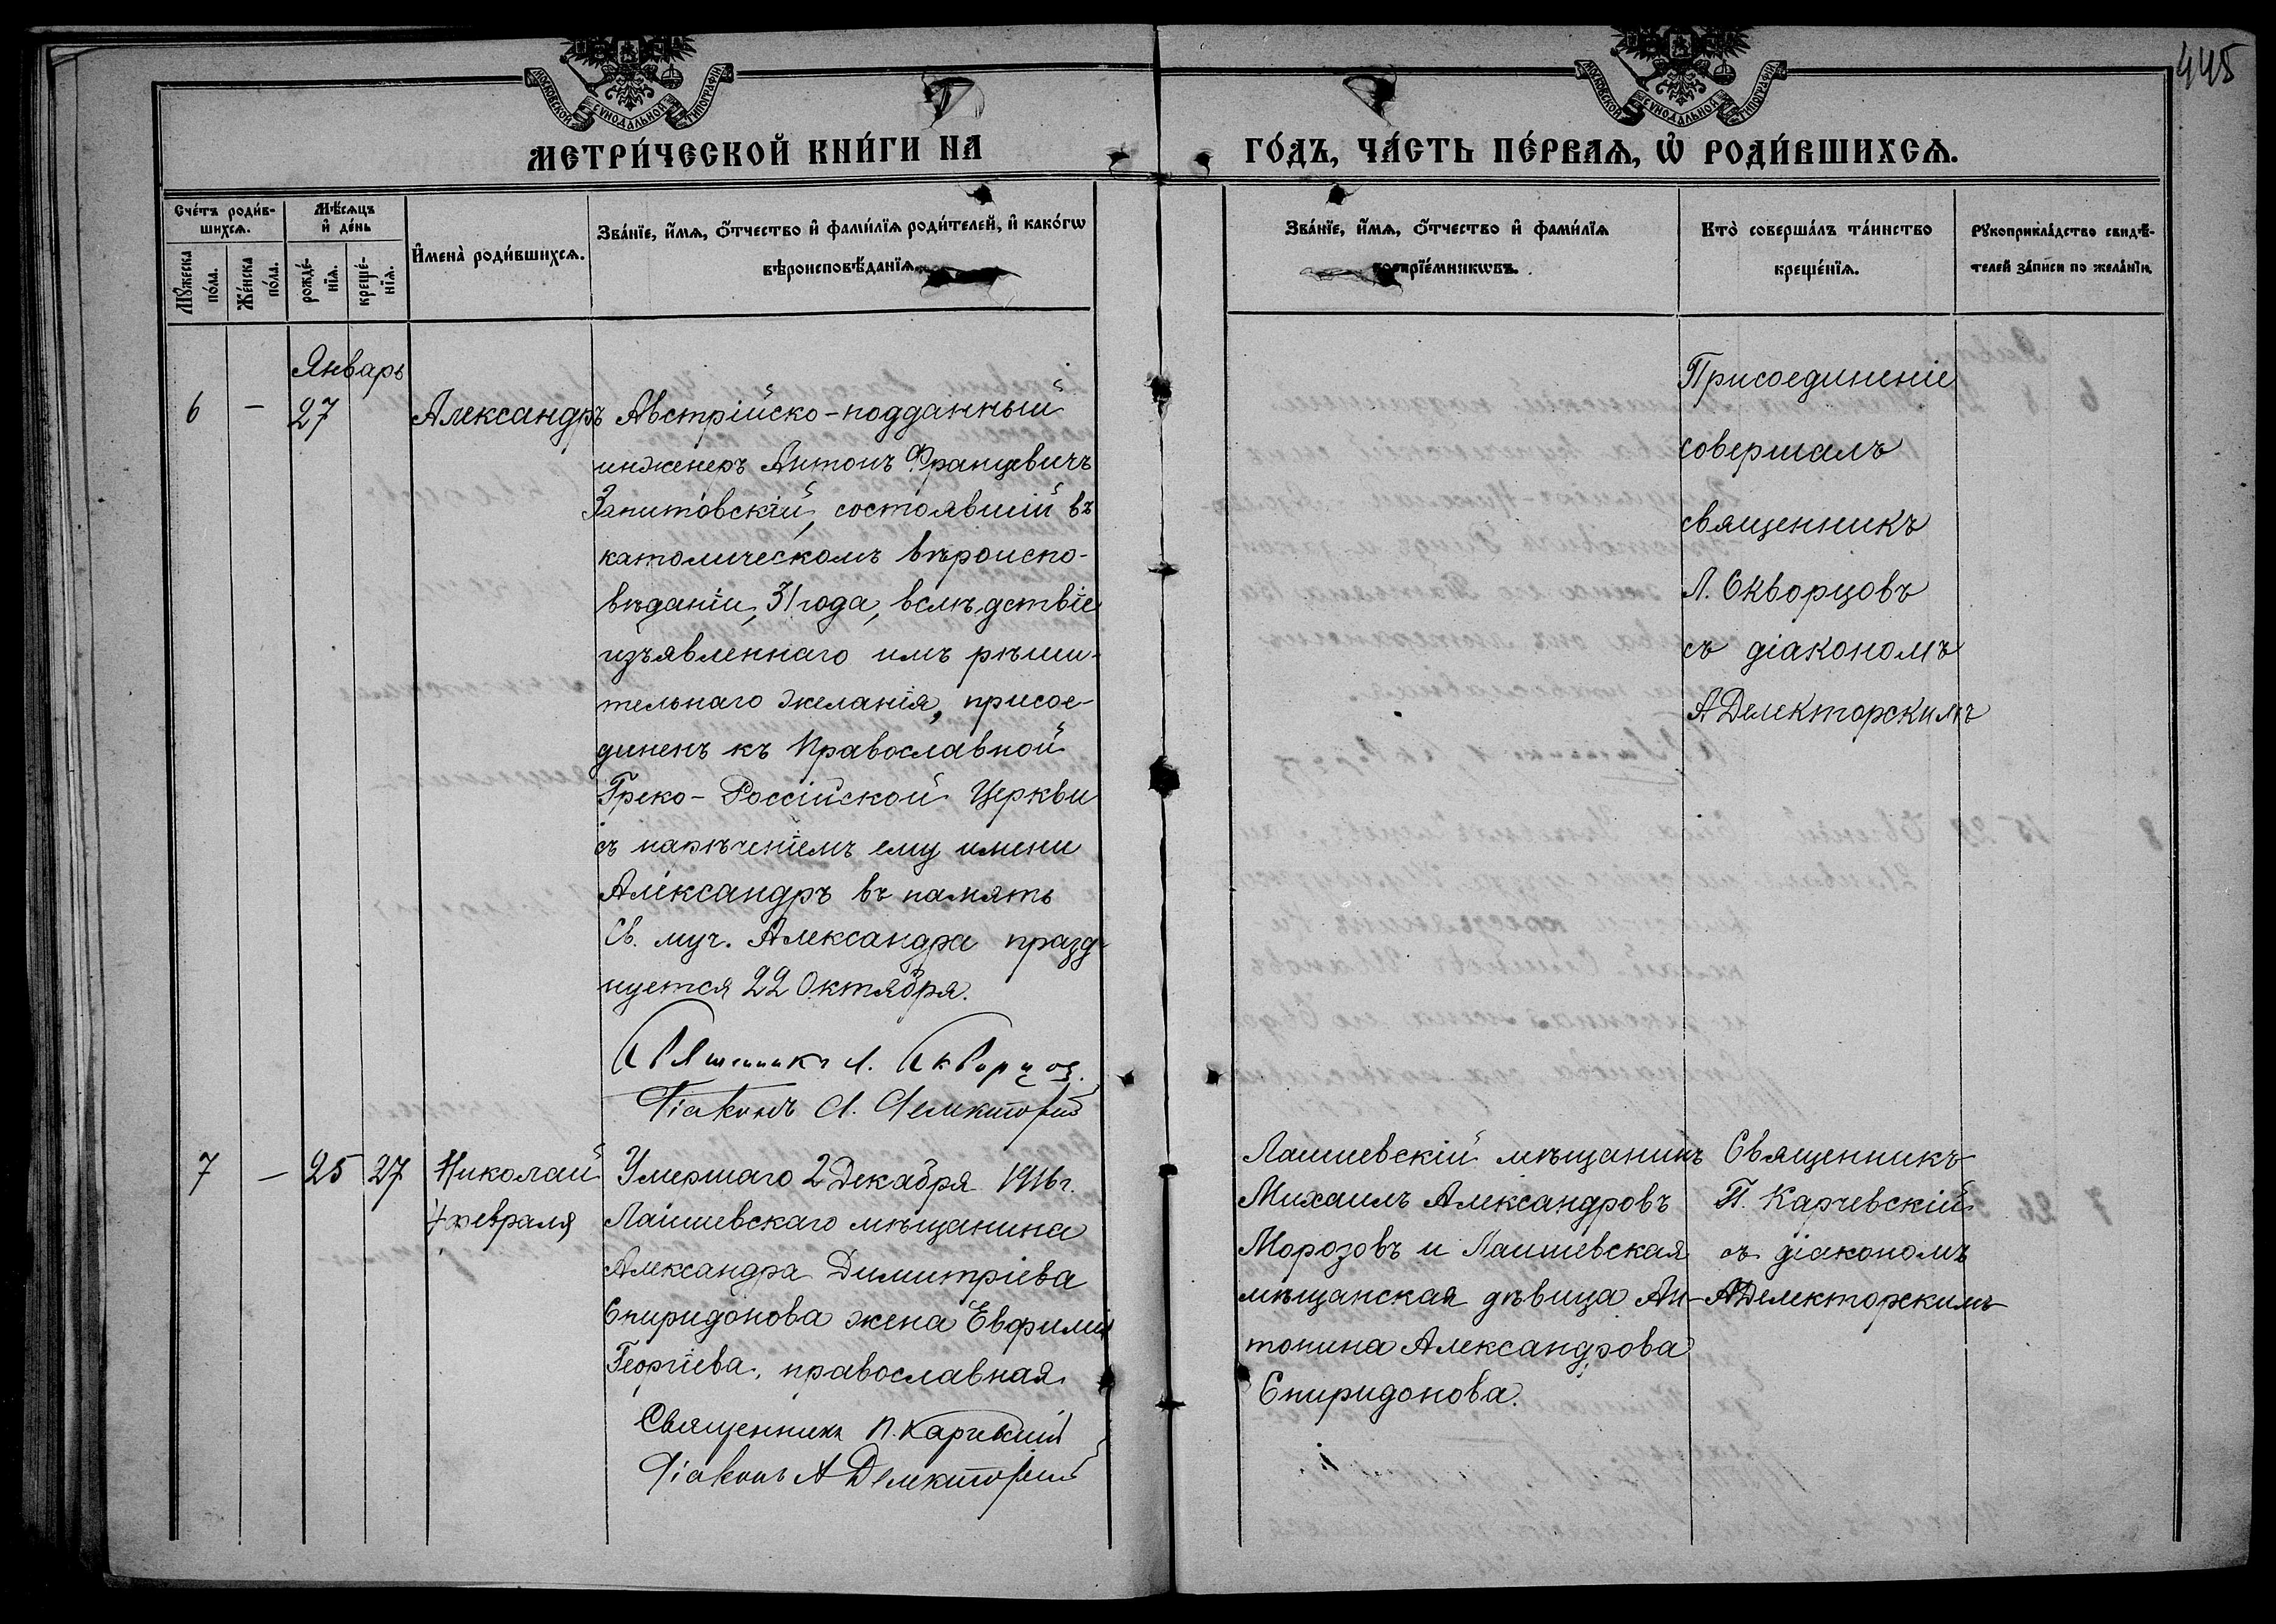 445
МОСКОВСКОЙ СѴНОДАЛЬНОЙ ТИПОГРАФІИ
МОСКОВСКОЙ СѴНОДАЛЬНОЙ ТИПОГРАФІИ
МЕТРИ́ЧЕСКОЙ КНИ́ГИ НА
ГО́ДЪ, ЧА́СТЬ ПЕ́РВАѦ, Ѽ РОДИ́ВШИХСѦ.
Сче́тъ роди́в-
шихсѧ.
Мѣ́сѧцъ
и҆ де́нь
Мꙋ́жеска
по́ла.
Же́нска
по́ла.
рожде́-
нїѧ.
креще́-
нїѧ.
И҆мена̀ роди́вшихсѧ.
Зва́нїе, и҆́мѧ, ѻ҆́тчество и҆ фами́лїѧ роди́телей, и҆ како́гѡ
вѣроисповѣ́данїѧ.
Зва́нїе, и҆́мѧ, ѻ҆́тчество и҆ фами́лїѧ
воспрїе́мникѡвъ.
Кто̀ соверша́лъ та́инство
креще́нїѧ.
Рꙋкоприкла́дство свидѣ́-
телей за́писи по жела́нїю.
Январь
6 — 27 Александръ
Австрійско-подданный
инженеръ Антонъ Францевичъ
Запитовскій, состоявшій въ
католическомъ вѣроиспо-
вѣданіи, 31 года, вслѣдствіе
изъявленнаго имъ рѣши-
тельнаго желанія, присое-
диненъ къ Православной
Греко-Россійской Церкви
съ нареченіемъ ему имени
Александръ въ память
Св. муч. Александра празд-
нуется 22 Октября.
Священникъ Л. Скворцов.
Діаконъ А. Делекторскій
Присоединеніе
совершалъ
священникъ
Л. Скворцовъ
съ діакономъ
А Делекторскимъ
7 — 25 27 Николай
4 февраля
Умершаго 2 Декабря 1916 г.
Лаишевскаго мѣщанина
Александра Димитріева
Спиридонова жена Евфимія
Георгіева, православная
Священникъ П. Карчевскій
Діаконъ А Делекторскій
Лаишевскій мѣщанинъ
Михаилъ Александровъ
Морозовъ и Лаишевская
мѣщанская дѣвица Ан-
тонина Александрова
Спиридонова.
Священникъ
П. Карчевскій
съ діакономъ
А Делекторскимъ